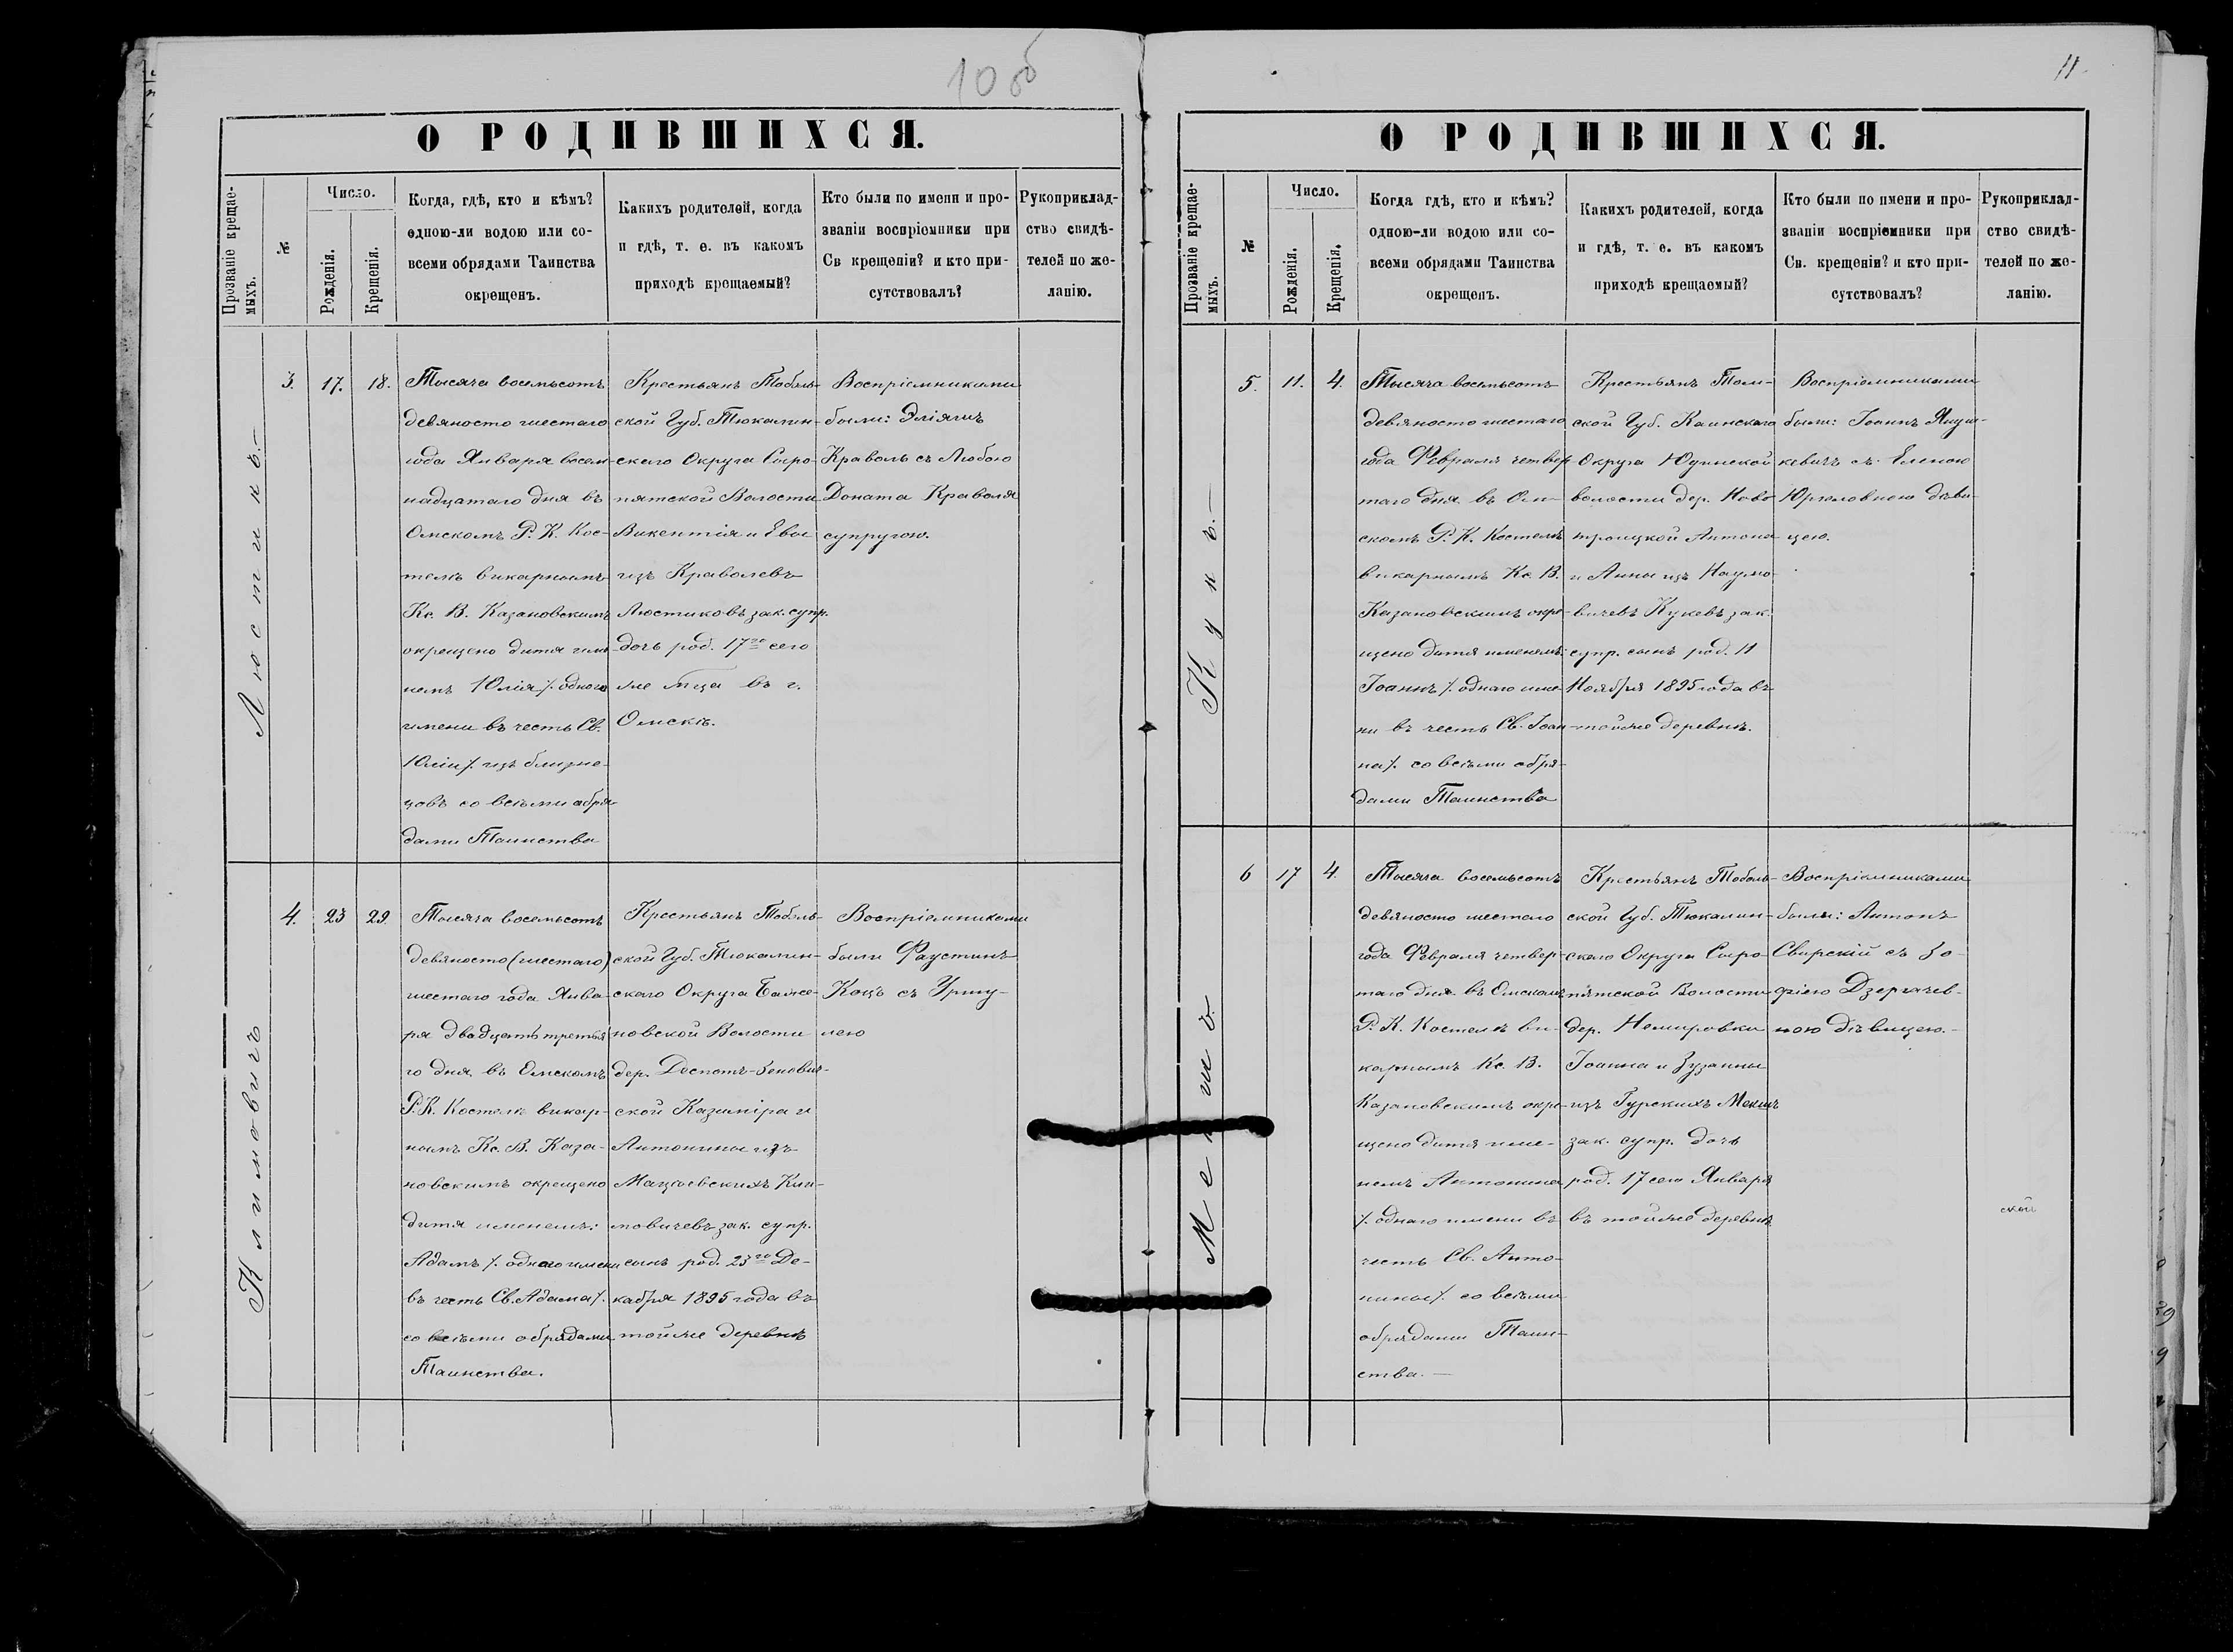 10 об
О РОДИВШИХСЯ.
Прозваніе крещае-
мыхъ.
№
Число.
Рожденія.
Крещенія.
Когда, гдѣ, кто и кѣмъ?
одною-ли водою или со-
всеми обрядами Таинства
окрещенъ.
Какихъ родителей, когда
и гдѣ, т. е. въ какомъ
приходѣ крещаемый?
Кто были по имени и про-
званіи воспріемники при
Св крещеніи? и кто при-
сутствовалъ?
Рукоприклад-
ство свидѣ-
телей по же-
ланію.
Люстикъ.—
3.
17.
18.
Тысяча восемьсотъ
девяносто шестаго
года Января восем-
надцатаго дня въ
Омскомъ Р. К. Кос-
телѣ викарнымъ
Кс. В. Казановскимъ
окрещено дитя име-
немъ Юлія /. одного
имени въ честь Св.
Юліи /. изъ близне-
цовъ со всѣми обря-
дами Таинства
Крестьянъ Тоболь-
ской Губ. Тюкалин-
скаго Округа Сыро-
пятской Волости
Викентія и Евы
изъ Краволевъ
Люстиковъ зак. супр.
дочь род. 17го сего
же м-ца въ г.
Омскѣ.
Воспріемниками
были: Эліяшъ
Краволь съ Любою
Доната Краволя
супругою.
Климовичъ
4.
23
29.
Тысяча восемьсотъ
девяносто (шестаго)
шестаго года Янва-
ря двадцать третья
го дня въ Омскомъ
Р. К. Костелѣ викар-
нымъ Кс. В. Каза-
новскимъ окрещено
дитя именемъ:
Адамъ /. однаго имени
въ честь Св. Адама /.
со всѣми обрядами
Таинства.
Крестьянъ Тоболь-
ской Губ. Тюкалин-
скаго Округа Баже-
новской Волости
дер. Деспотъ-Зенович-
ской Казиміра и
Антонины изъ
Мацѣевскихъ Кли-
мовичевъ зак. супр.
сынъ род. 23го Де-
кабря 1895 года въ
той же деревнѣ
Воспріемниками
были Фаустинъ
Коцъ съ Уршу-
лею
11.
О РОДИВШИХСЯ.
Прозваніе крещае-
мыхъ.
№
Число.
Рожденія.
Крещенія.
Когда гдѣ, кто и кѣмъ?
одною-ли водою или со-
всеми обрядами Таинства
окрещенъ.
Какихъ родителей, когда
и гдѣ, т. е. въ какомъ
приходѣ крещаемый?
Кто были по имени и про-
званіи воспріемники при
Св. крещеніи? и кто при-
сутствовалъ?
Рукоприклад-
ство свидѣ-
телей по же-
ланію.
Кукъ.—
5.
11.
4.
Тысяча восемьсотъ
девяносто шестаго
года Февраля четвер-
таго дня въ Ом-
скомъ Р. К. Костелѣ
викарнымъ Кс. В.
Казановскимъ окре-
щено дитя именемъ:
Іоаннъ /. однаго име-
ни въ честь Св. Іоан-
на /. со всѣми обря-
дами Таинства
Крестьянъ Том-
ской Губ. Каинскаго
Округа Юдинской
волости дер. Ново
троицкой Антона
и Анны изъ Наумо-
вичевъ Кукевъ зак.
супр. сынъ род. 11
Ноября 1895 года въ
той же деревнѣ.
Воспріемниками
были: Іоаннъ Януш-
кевичъ съ Еленою
дѣви-
цею.
Мекшъ.
6
17
4.
Тысяча восемьсотъ
девяносто шестаго
года Февраля четвер-
таго дня въ Омскомъ
Р. К. Костелѣ ви-
карнымъ Кс. В.
Казановскимъ окре-
щено дитя име-
немъ Антонина
/. однаго имени въ
честь Св. Анто-
нины /. со всѣми
обрядами Таин-
ства.—
Крестьянъ Тоболь-
ской Губ. Тюкалин-
скаго Округа Сыро-
пятской Волости
дер. Немировки
Іоанна и Зузанны
изъ Гурскихъ Мекшъ
зак. супр. дочь
род. 17 сего Января
въ той же деревнѣ
Воспріемниками
были: Антонъ
Свирскій съ Зо-
фіею Дзергачев-
ною дѣвицею.—
ской